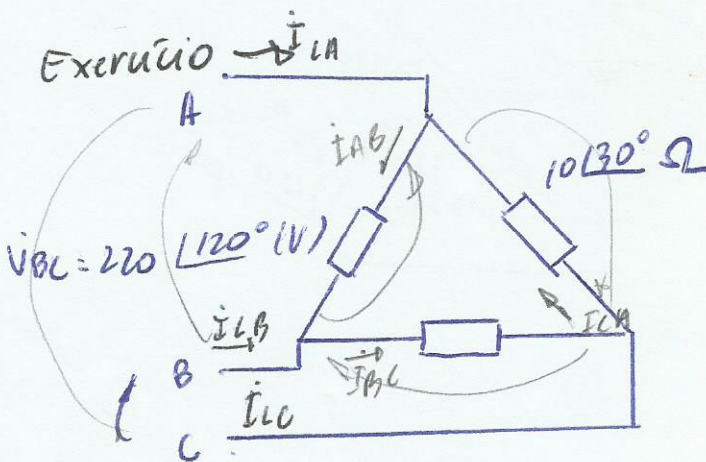 Exercício
İLA
A
İAB
10∠30° Ω
V̇BC = 220 ∠120° (V)
İLB
İCA
B
İBC
İLC
C